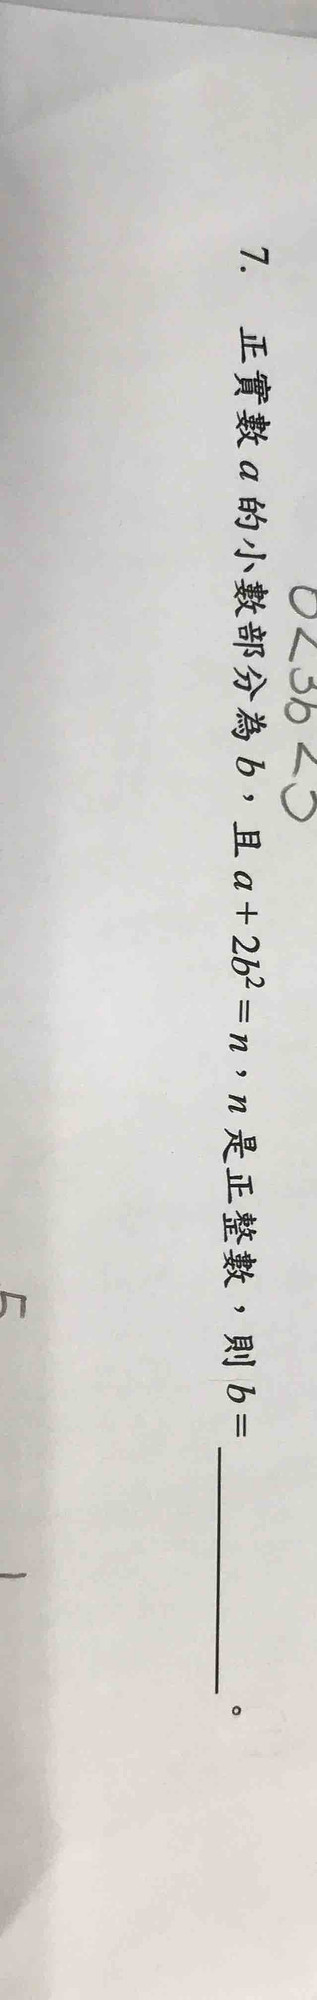 0<3b<3
7. 正實數 a 的小數部分為 b，且 a + 2b² = n，n 是正整數，則 b = ________。
5